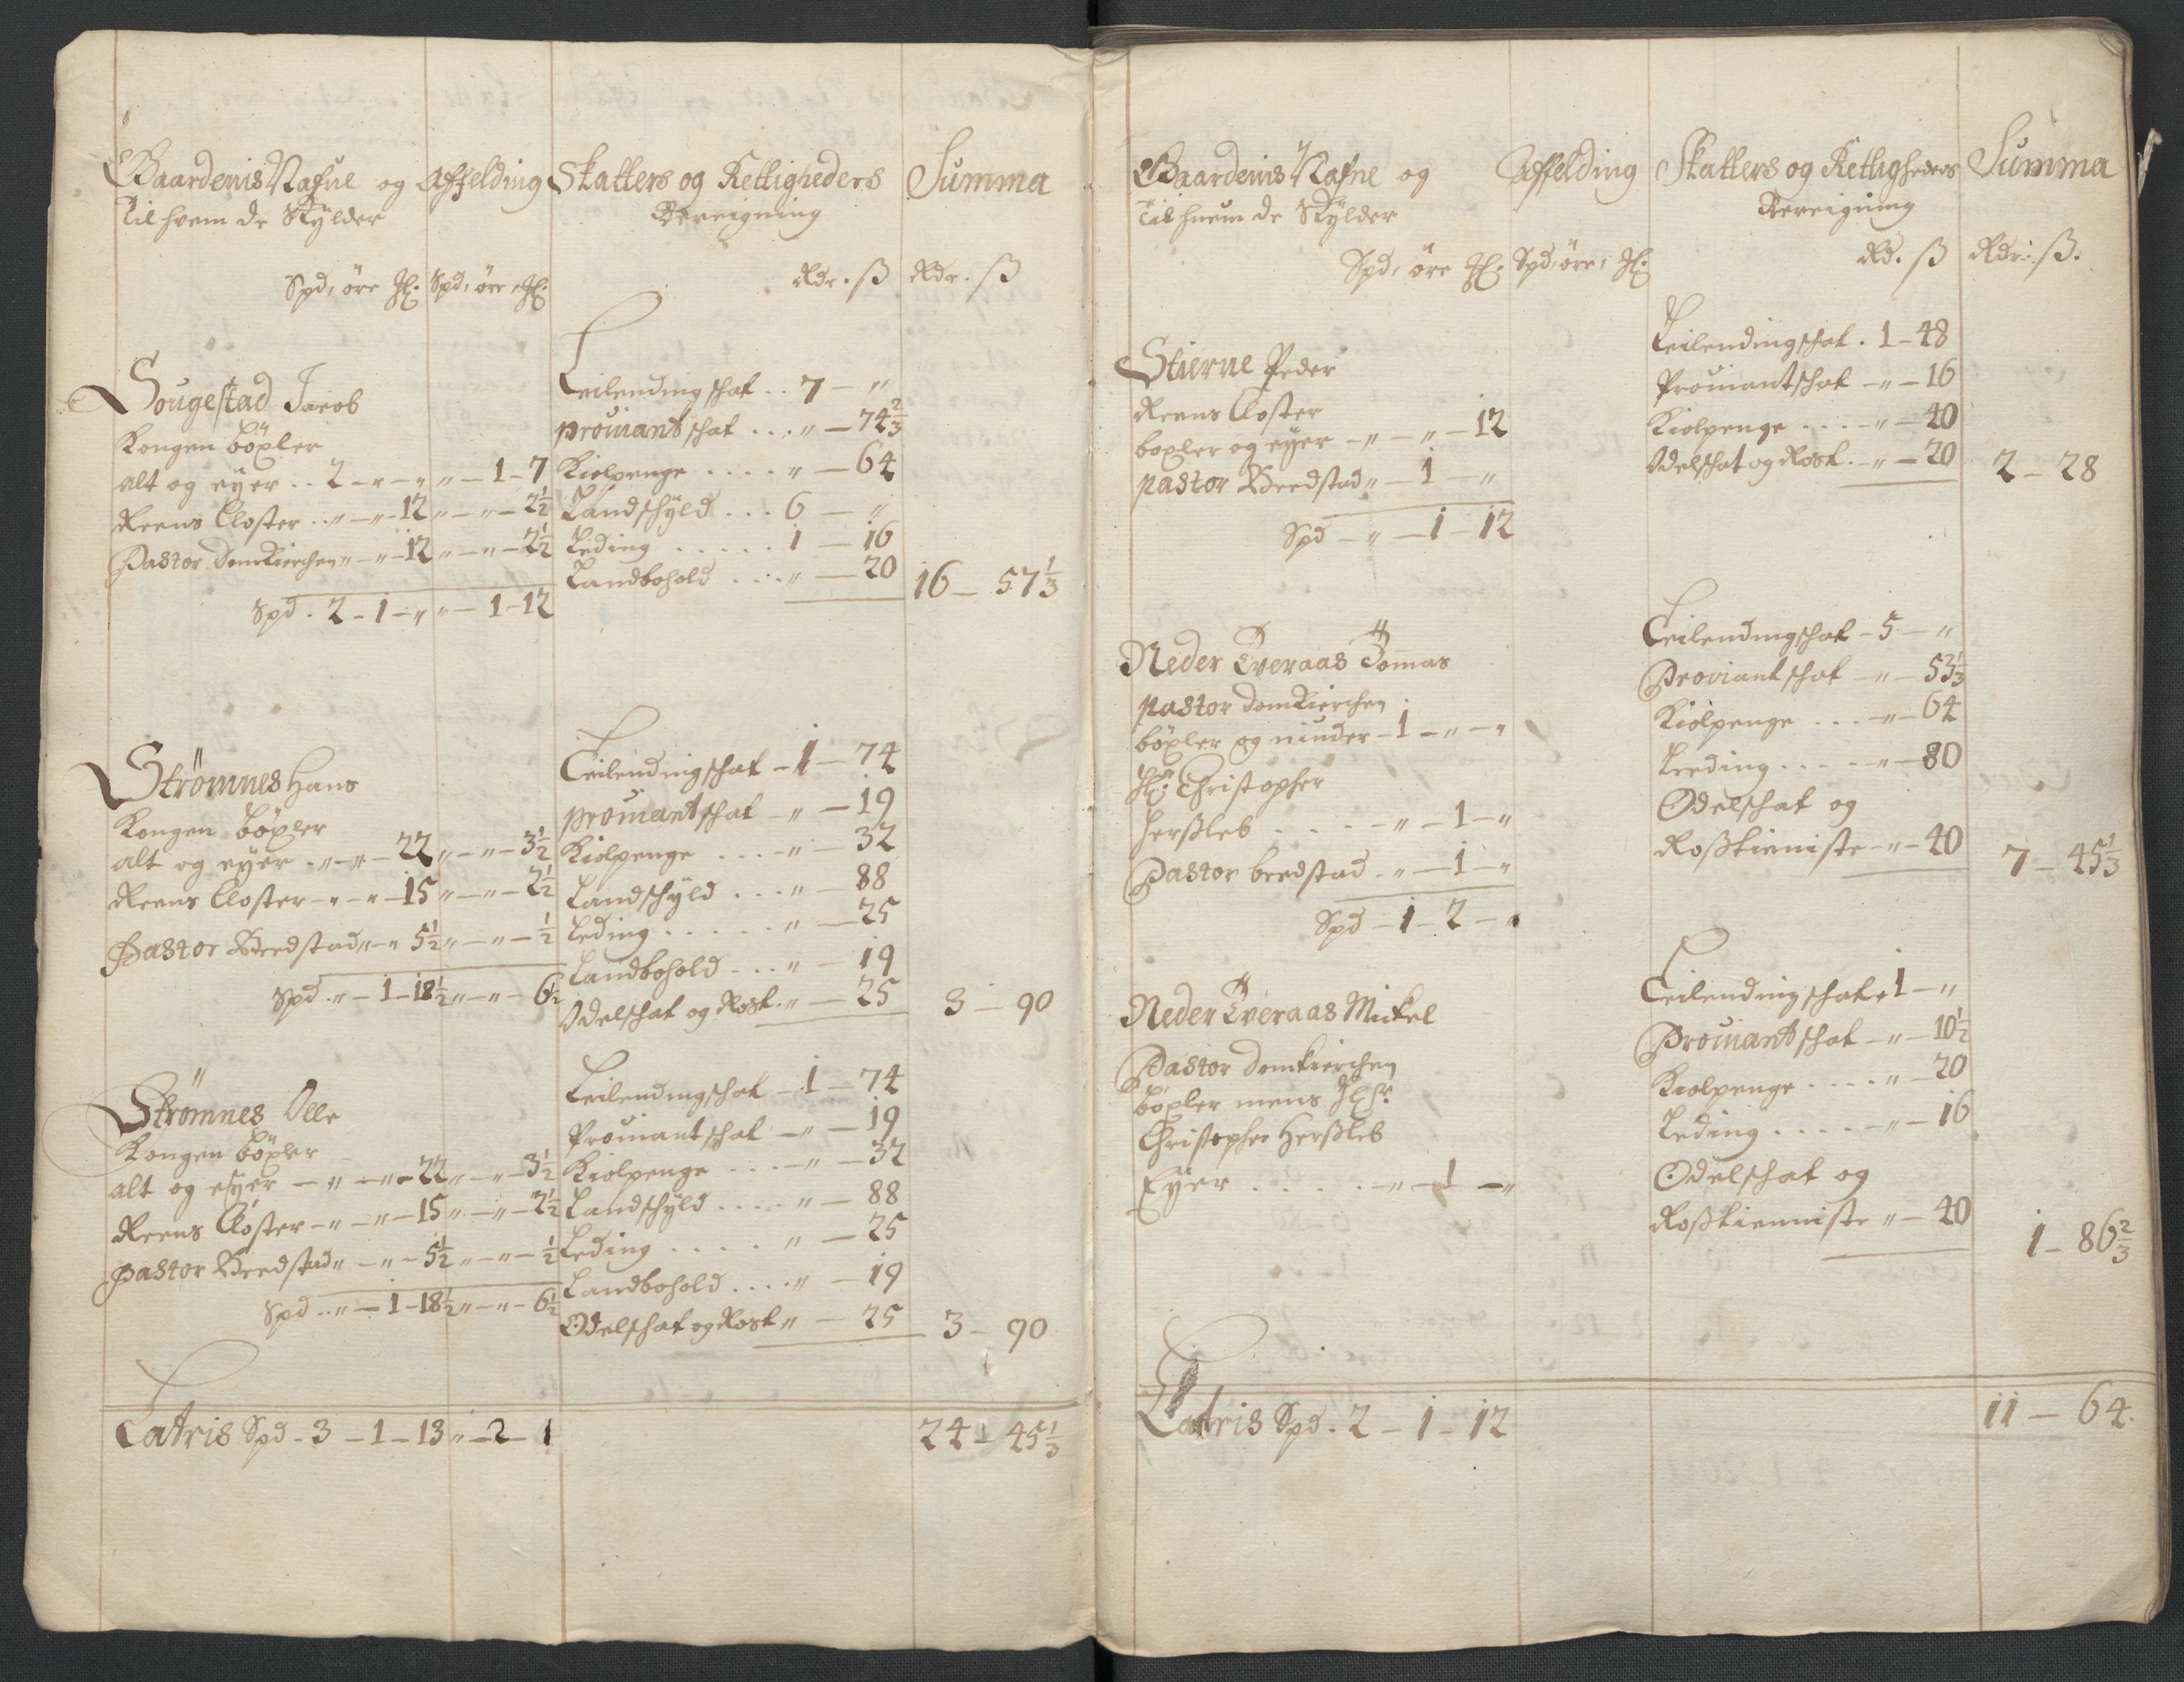 Gaardenis Nafne og
Til hvem de Skylder
Affelding
Skatters og Rettigheders
Bereigning
Summa
Spd, öre
Spd, öre
Rdr. ß
Rdr. ß
Sougestad Jacob
Kongen böxler
alt og eyer .. 2 - „ - „ „ - 1 - 7
Reens Closter .. „ - „ - 12 „ - „ - 2½
Pastor Domkierchen „ - „ - 12 „ - „ - 2½
Spd . 2 - 1 - „ „ - 1 - 12
Leilendingschat .. 7 - „
proviantschat ... „ - 74⅔
Kiolpenge .... „ - 64
Landschyld ... 6 - „
Leding ..... 1 - 16
Landbohold ... „ - 20
16 - 57⅓
Strömnes Hans
Kongen böxler
alt og eyer - „ - „ - 22 „ - „ - 3½
Reens Closter - „ - „ - 15 „ - „ - 2½
Pastor Beedstad „ - „ 5½ „ - „ - ½
Spd . „ - 1 - 18½ „ - „ - 6½
Leilendingschat - 1 - 74
proviantschat - „ - 19
Kiolpenge .... „ - 32
Landschyld ... „ - 88
Leding ..... „ - 25
Landbohold ... „ - 19
Odelschat og Rost . „ - 25
3 - 90
Strömnes Olle
Kongen böxler
alt og eyer - „ - „ - 22 „ - „ - 3½
Reens Closter - „ - „ - 15 „ - „ - 2½
pastor Beedstad „ - „ - 5½ „ - „ - ½
Spd .. „ - 1 - 18½ „ - „ - 6½
Leilendingschat - 1 - 74
Proviantschat - „ - 19
Kiolpenge ... - „ - 32
Landschyld .... „ - 88
Leding .... „ - 25
Landbohold .... „ - 19
Odelschat og Rost „ - 25
3 - 90
Latris Spd - 3 - 1 - 13 „ - 2 - 1
24 - 45⅓
Gaardenis Nafne og
Til hvem de Skylder
Affelding
Skatters og Rettigheders
Bereigning
Summa
Spd, öre
Spd, öre
Rd. ß
Rdr: ß.
Stierne Peder
Reens Closter
boxler og eyer - „ - „ - 12
pastor Beedstad „ - 1 - „
Spd - „ - 1 - 12
Leilendingschat . 1 - 48
Proviantschat - „ - 16
Kiolpenge .... - „ - 40
Odelschat og Rost . - „ - 20
2 - 28
Neder Tveraas Tommas
pastor Domkierchen
böxler og niuder - 1 - „ - „
Hr: Christopher
Herßleb .... - „ - 1 - „
Pastor beedstad .. „ - 1 - „
Spd - 1 - 2 - „
Leilendingschat - 5 - „
Proviantschat - „ - 53⅓
Kiölpenge ... - „ - 64
Leeding .... - „ - 80
Odelschat og
Roßtieniste - „ - 40
7 - 45⅓
Neder Tveraas Mickel
Pastor Domkierchen
böxler mens Hr:
Christopher Herßleb
Eyer ..... - „ - 1 - „
Leilendingschat . 1 - „
Proviantschat - „ - 10½
Kiolpenge .... „ - 20
Leding .... - „ - 16
Odelschat og
Roßtienniste „ - 40
1 - 86⅔
Latris Spd . 2 - 1 - 12
11 - 64.